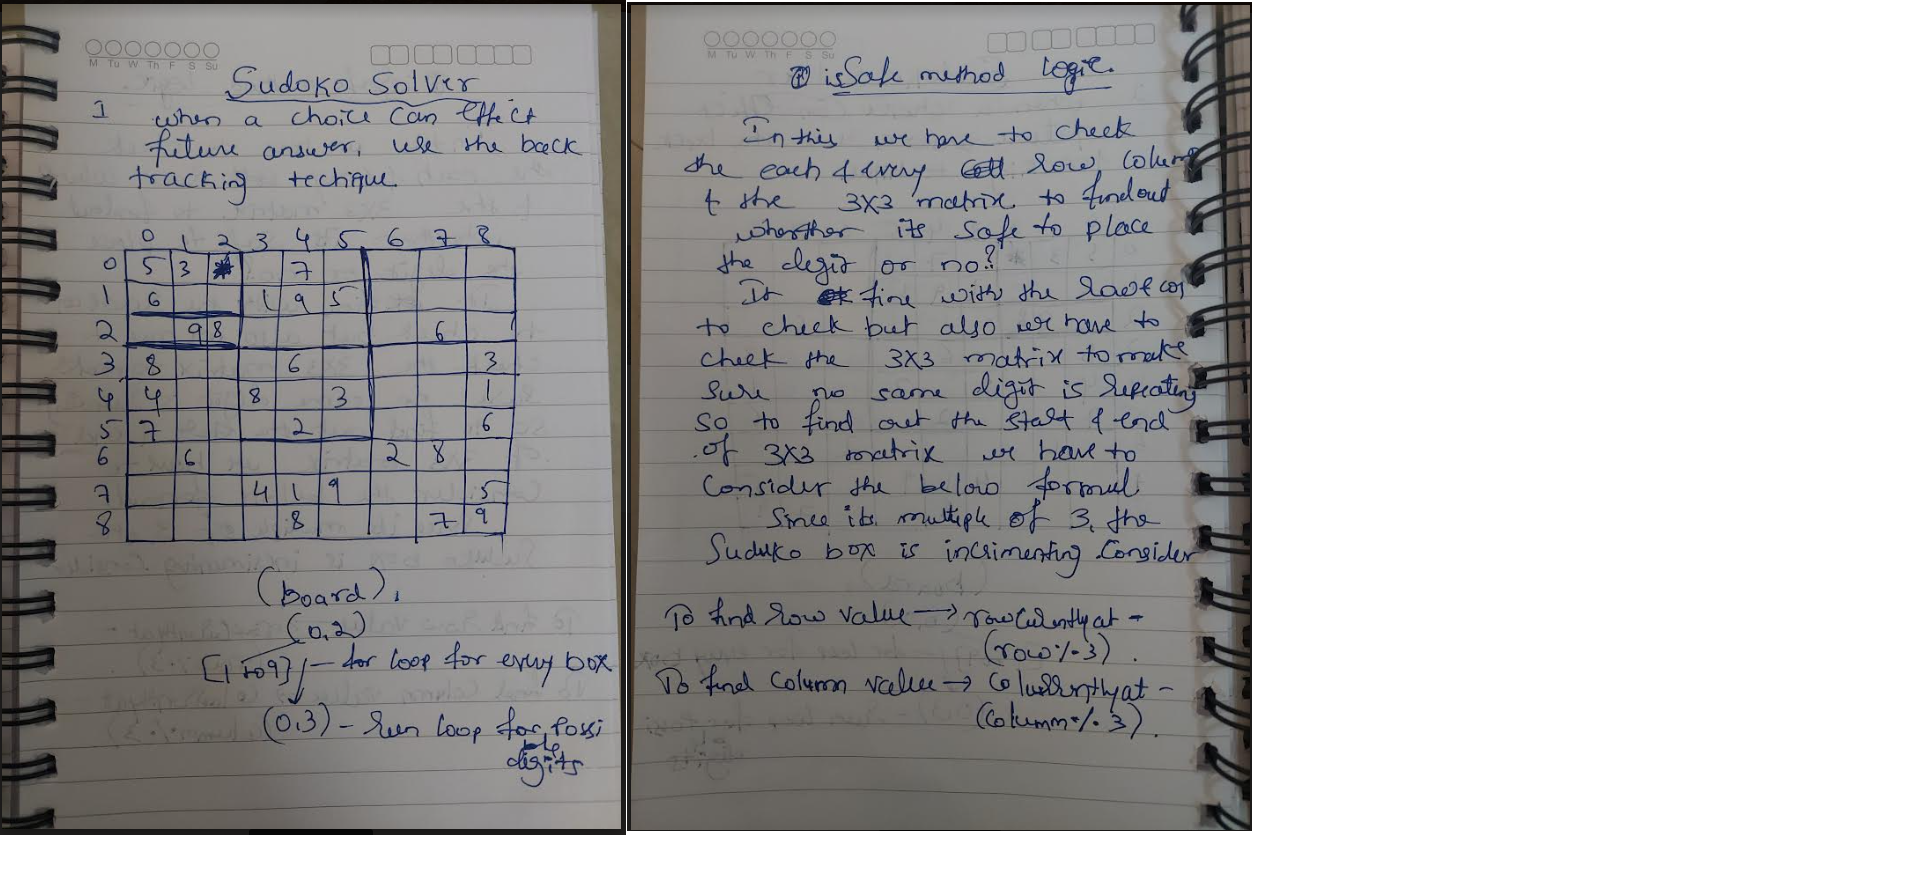 M Tu W Th F S Su
Sudoko Solver
1 when a choice can effect
future answer, use the back
tracking techique
0 1 2 3 4 5 6 7 8
0 5 3 7
1 6 1 9 5
2 9 8 6
3 8 6 3
4 4 8 3 1
5 7 2 6
6 6 2 8
7 4 1 9 5
8 8 7 9
(board),
(0,2)
[1 to 9] - for loop for every box
(0,3) - run loop for possi
ble
digits
M Tu W Th F S Su
isSafe method logic.
In this we have to check
the each & every row, column
& the 3X3 matrix to findout
wherther its safe to place
the degit or no?
It fine with the row & col
to check but also we have to
check the 3X3 matrix to make
sure no same digit is repeating
so to find out the start & end
of 3X3 matrix we have to
Consider the below formul
Since its multiple of 3, the
Suduko box is incrimenting Consider
To find row value → rowCurrentlyat -
(row % 3).
To find column value → Colcurrentlyat -
(column % 3).